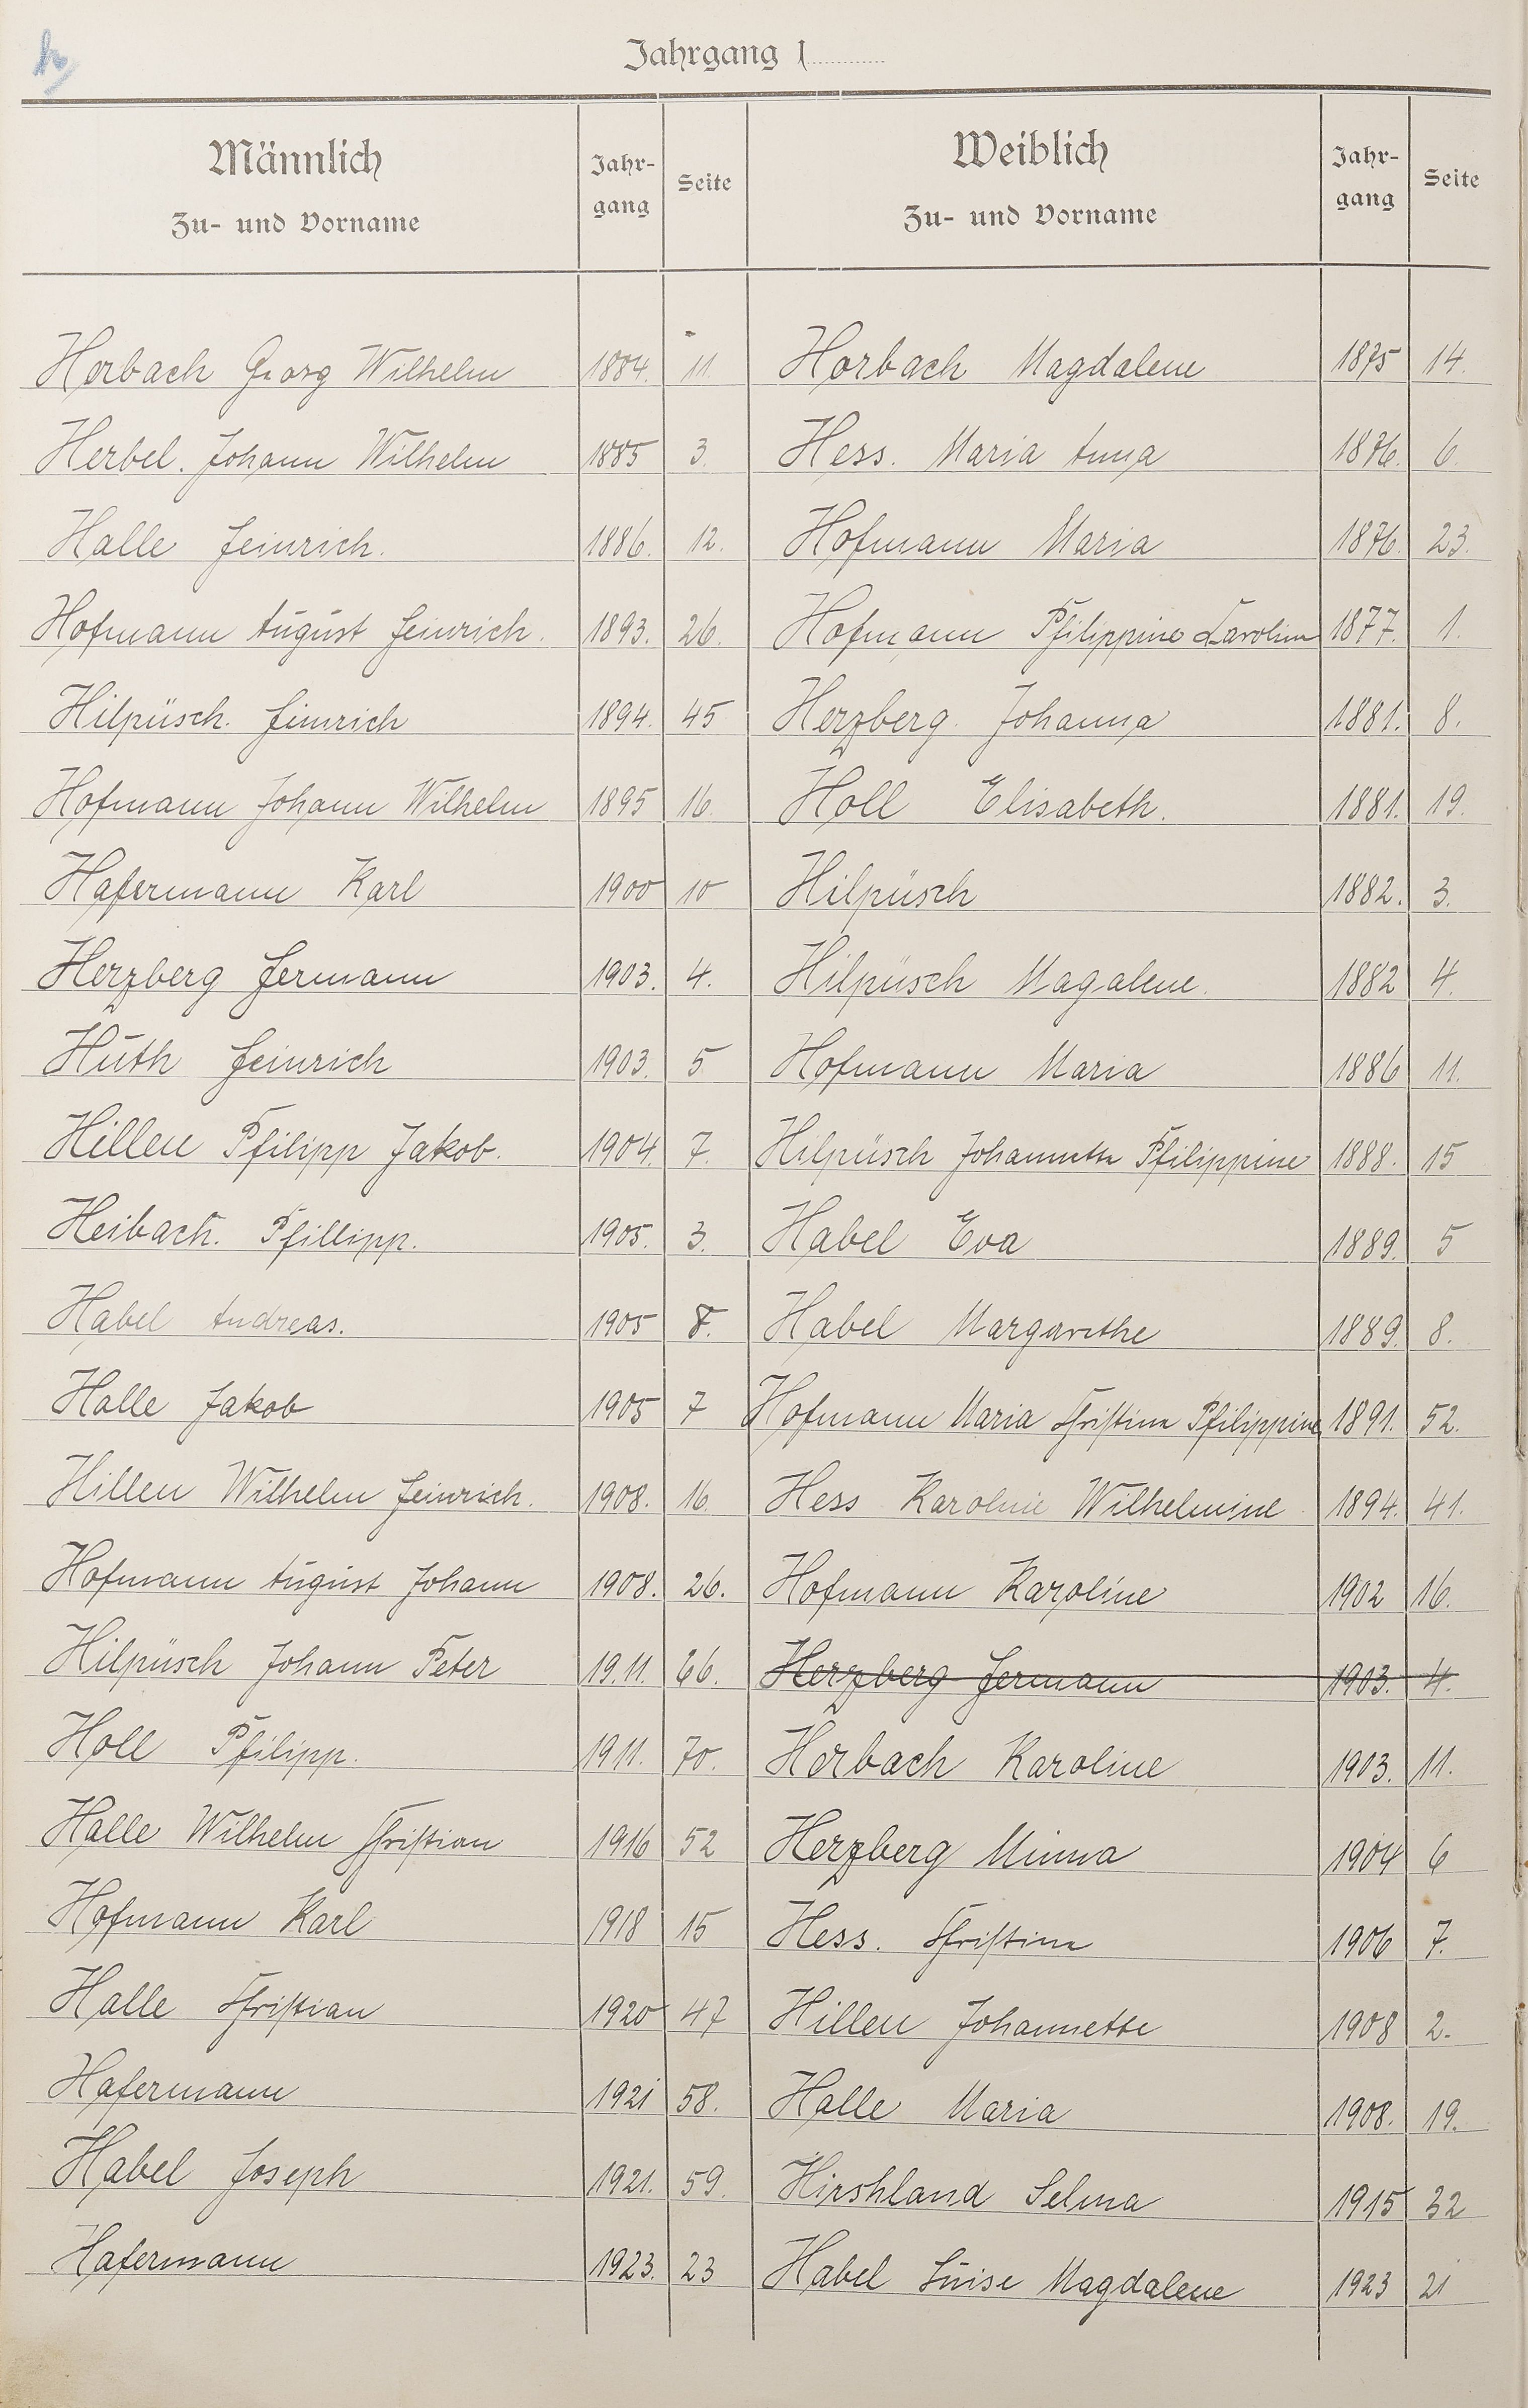 Jahrgang 1
Männlich
Zu- und Vorname
Jahr-
gang
Seite
Weiblich
Zu- und Vorname
Jahr-
gang
Seite
Horbach Georg Wilhelm 1884. 11. Horbach Magdalene 1875 14.
Herbel. Johann Wilhelm 1885 3. Hess. Maria Anna 1876. 6.
Halle Heinrich. 1886. 12. Hofmann Maria 1876. 23.
Hofmann August Heinrich. 1893. 26. Hofmann Philippine Karoline 1877. 1.
Hilpüsch. Heinrich 1894. 45 Herzberg. Johanna 1881. 8.
Hofmann Johann Wilhelm 1895 16. Holl Elisabeth. 1881. 19.
Hafermann Karl 1900 10 Hilpüsch 1882. 3.
Herzberg Hermann 1903. 4. Hilpüsch Magalene. 1882 4.
Huth Heinrich 1903. 5 Hofmann Maria 1886 11.
Hillen Philipp Jakob. 1904. 7. Hilpüsch Johannette Philippine 1888. 15
Heibach. Phillipp. 1905. 3. Habel Eva 1889. 5
Habel Andreas. 1905 8. Habel Margarethe 1889. 8.
Halle Jakob 1905 7 Hofmann Maria Christine Philippine 1891. 52.
Hillen Wilhelm Heinrich. 1908. 16. Hess Karoline Wilhelmine 1894. 41.
Hofmann August Johann 1908. 26. Hofmann Karoline 1902 16.
Hilpüsch Johann Peter 19.11. 66. Herzberg Hermann 1903. 4.
Holl Philipp. 1911. 70. Horbach Karoline 1903. 11.
Halle Wilhelm Christian 1916 52 Herzberg Minna 1904 6
Hofmann Karl 1918 15 Hess. Christine 1906 7.
Halle Christian 1920 47 Hillen Johannette 1908 2.
Hafermann 1921 58. Halle Maria 1908. 19.
Habel Joseph 1921. 59. Hirshland Selma 1915 32
Hafermann 1923. 23 Habel Luise Magdalene 1923 21